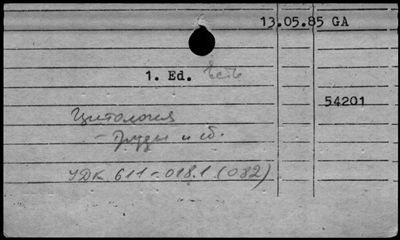 13.05.85 GA
1. Ed. есть
54201
Цитология
- Труды и сб.
УДК 611-018.1 (082)